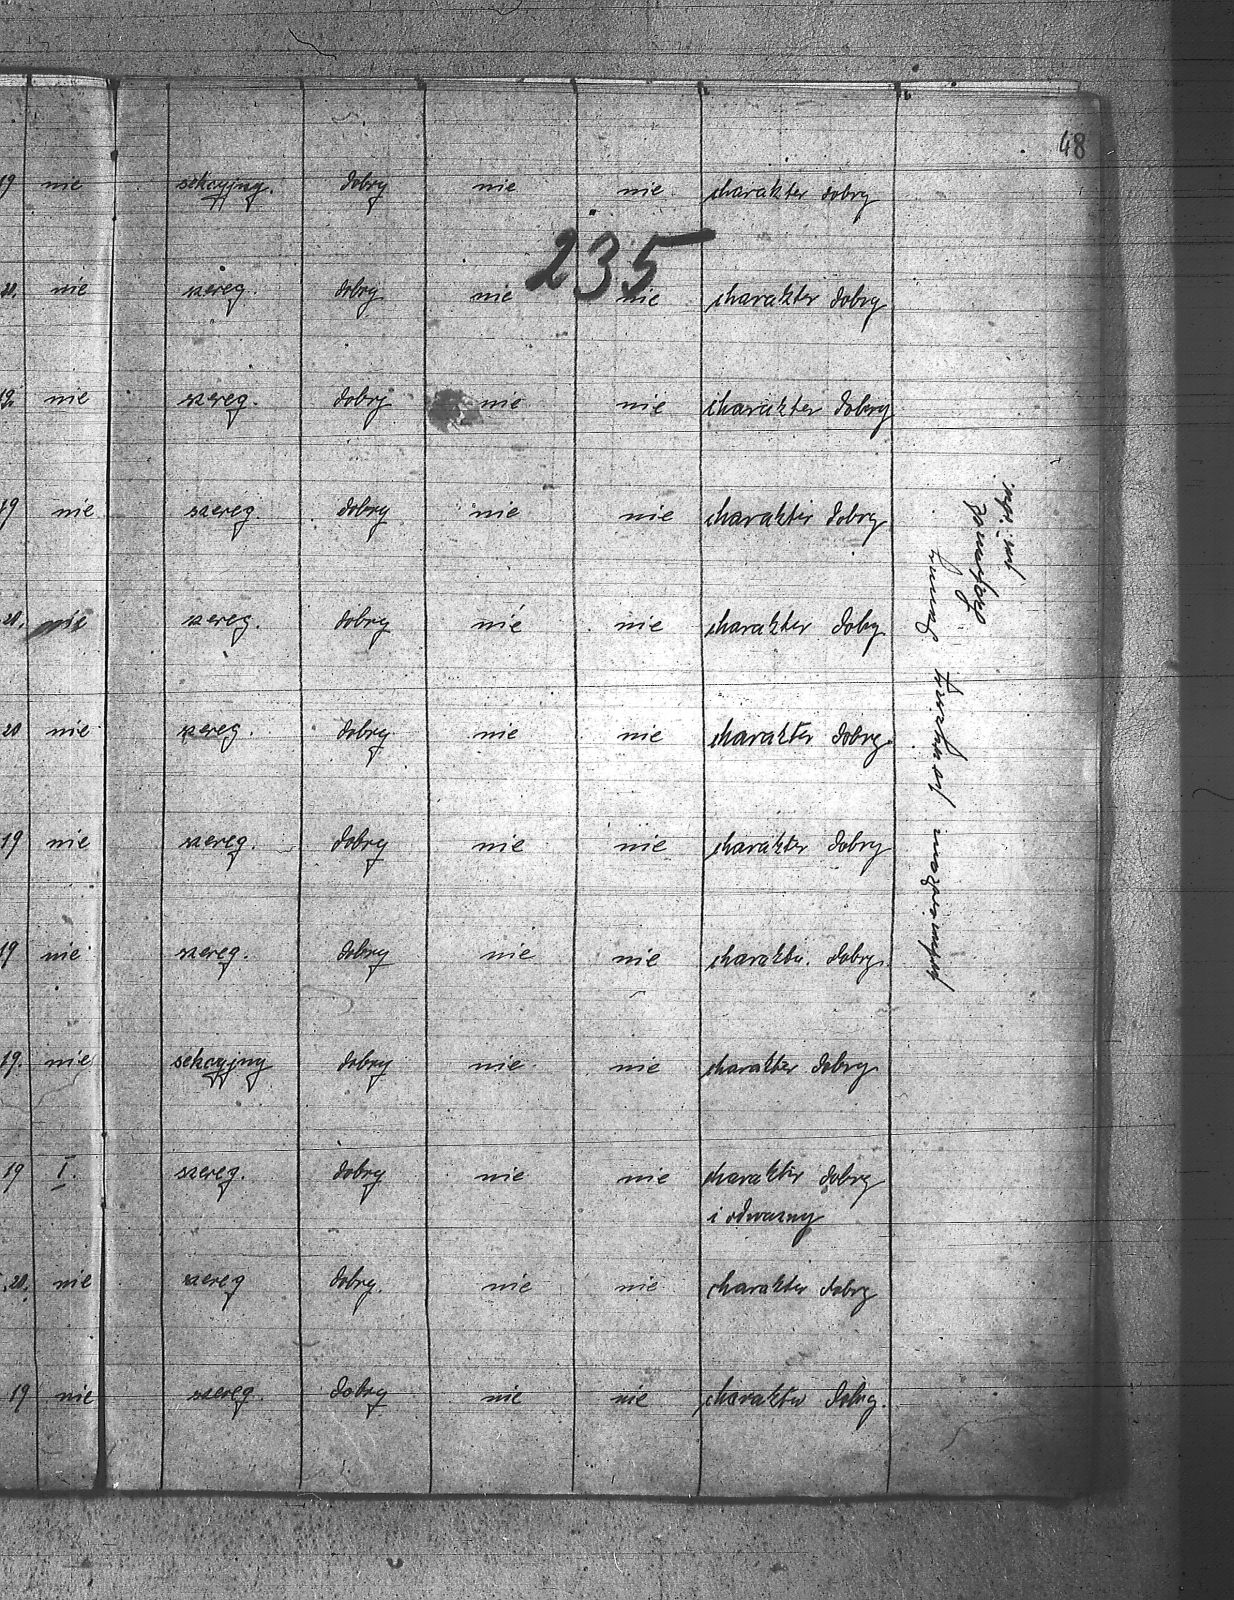 48
19 nie sekcyjny. dobry nie nie charakter dobry
235
20. nie szereg. dobry nie nie charakter dobry
19. nie szereg. dobry nie nie charakter dobry
19 nie szereg. dobry nie nie charakter dobry
20. nie szereg. dobry nie nie charakter dobry
20 nie szereg. dobry nie nie charakter dobry.
19 nie szereg. dobry nie nie charakter dobry
19 nie szereg. dobry nie nie charakter dobry.
19. nie sekcyjny dobry nie nie charakter dobry
19 I. szereg. dobry nie nie charakter dobry
i odważny
20. nie szereg dobry. nie nie charakter dobry
19 nie szereg. dobry nie nie charakter dobry.